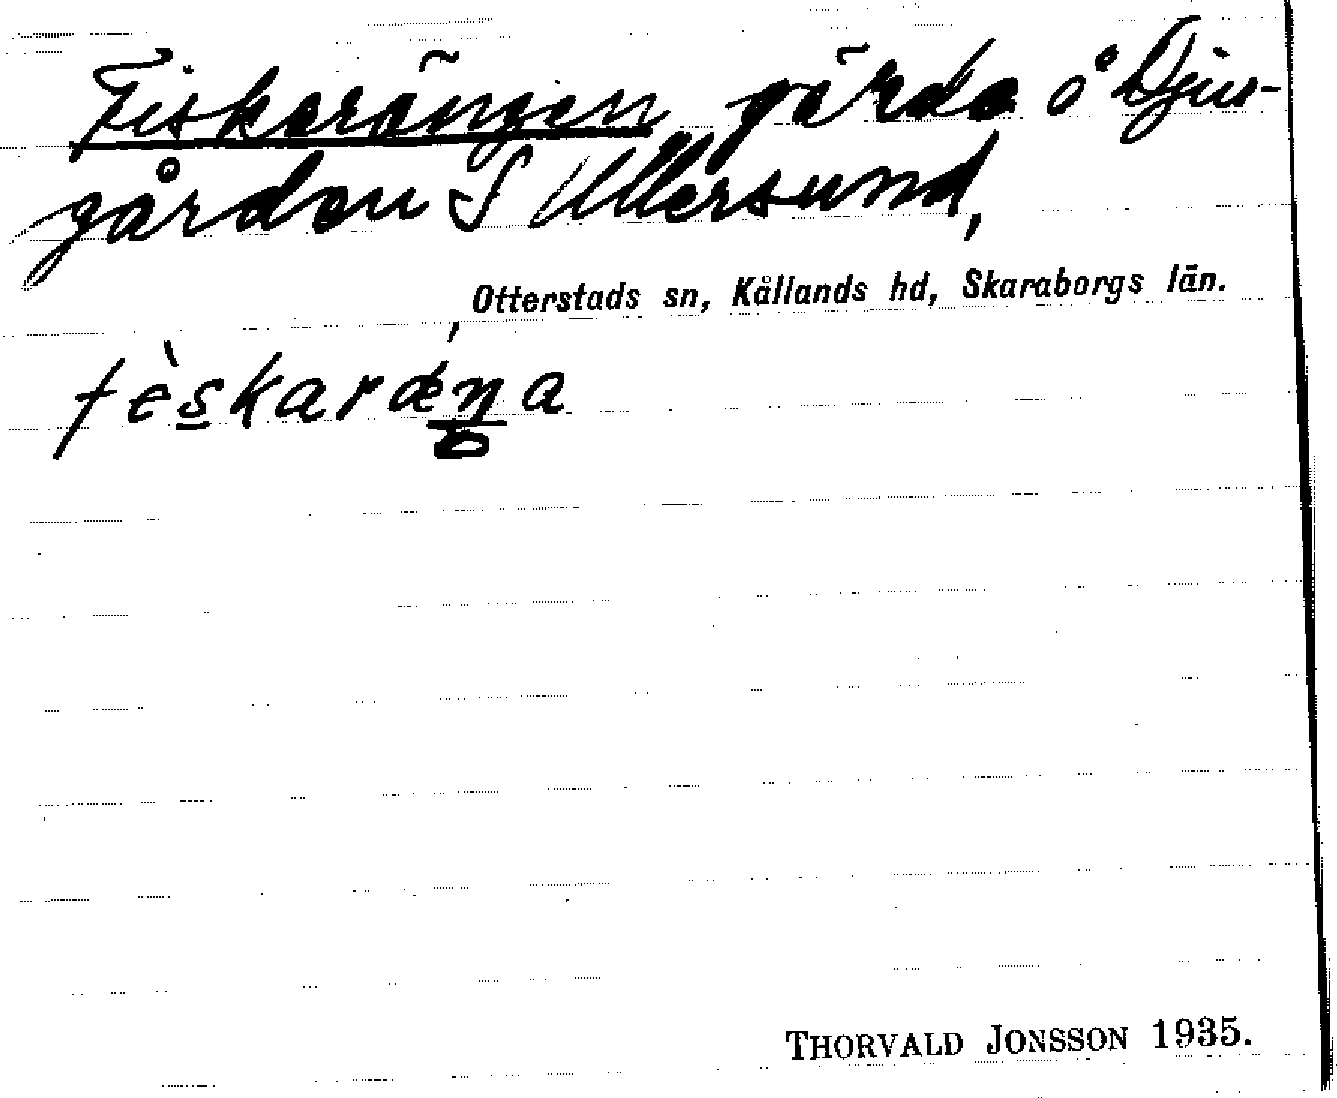 Fiskarängen gärde å Djur-
gården S Ullersund,
Otterstads sn, Kållands hd, Skaraborgs län.
fèskaræŋa
THORVALD JONSSON 1935.